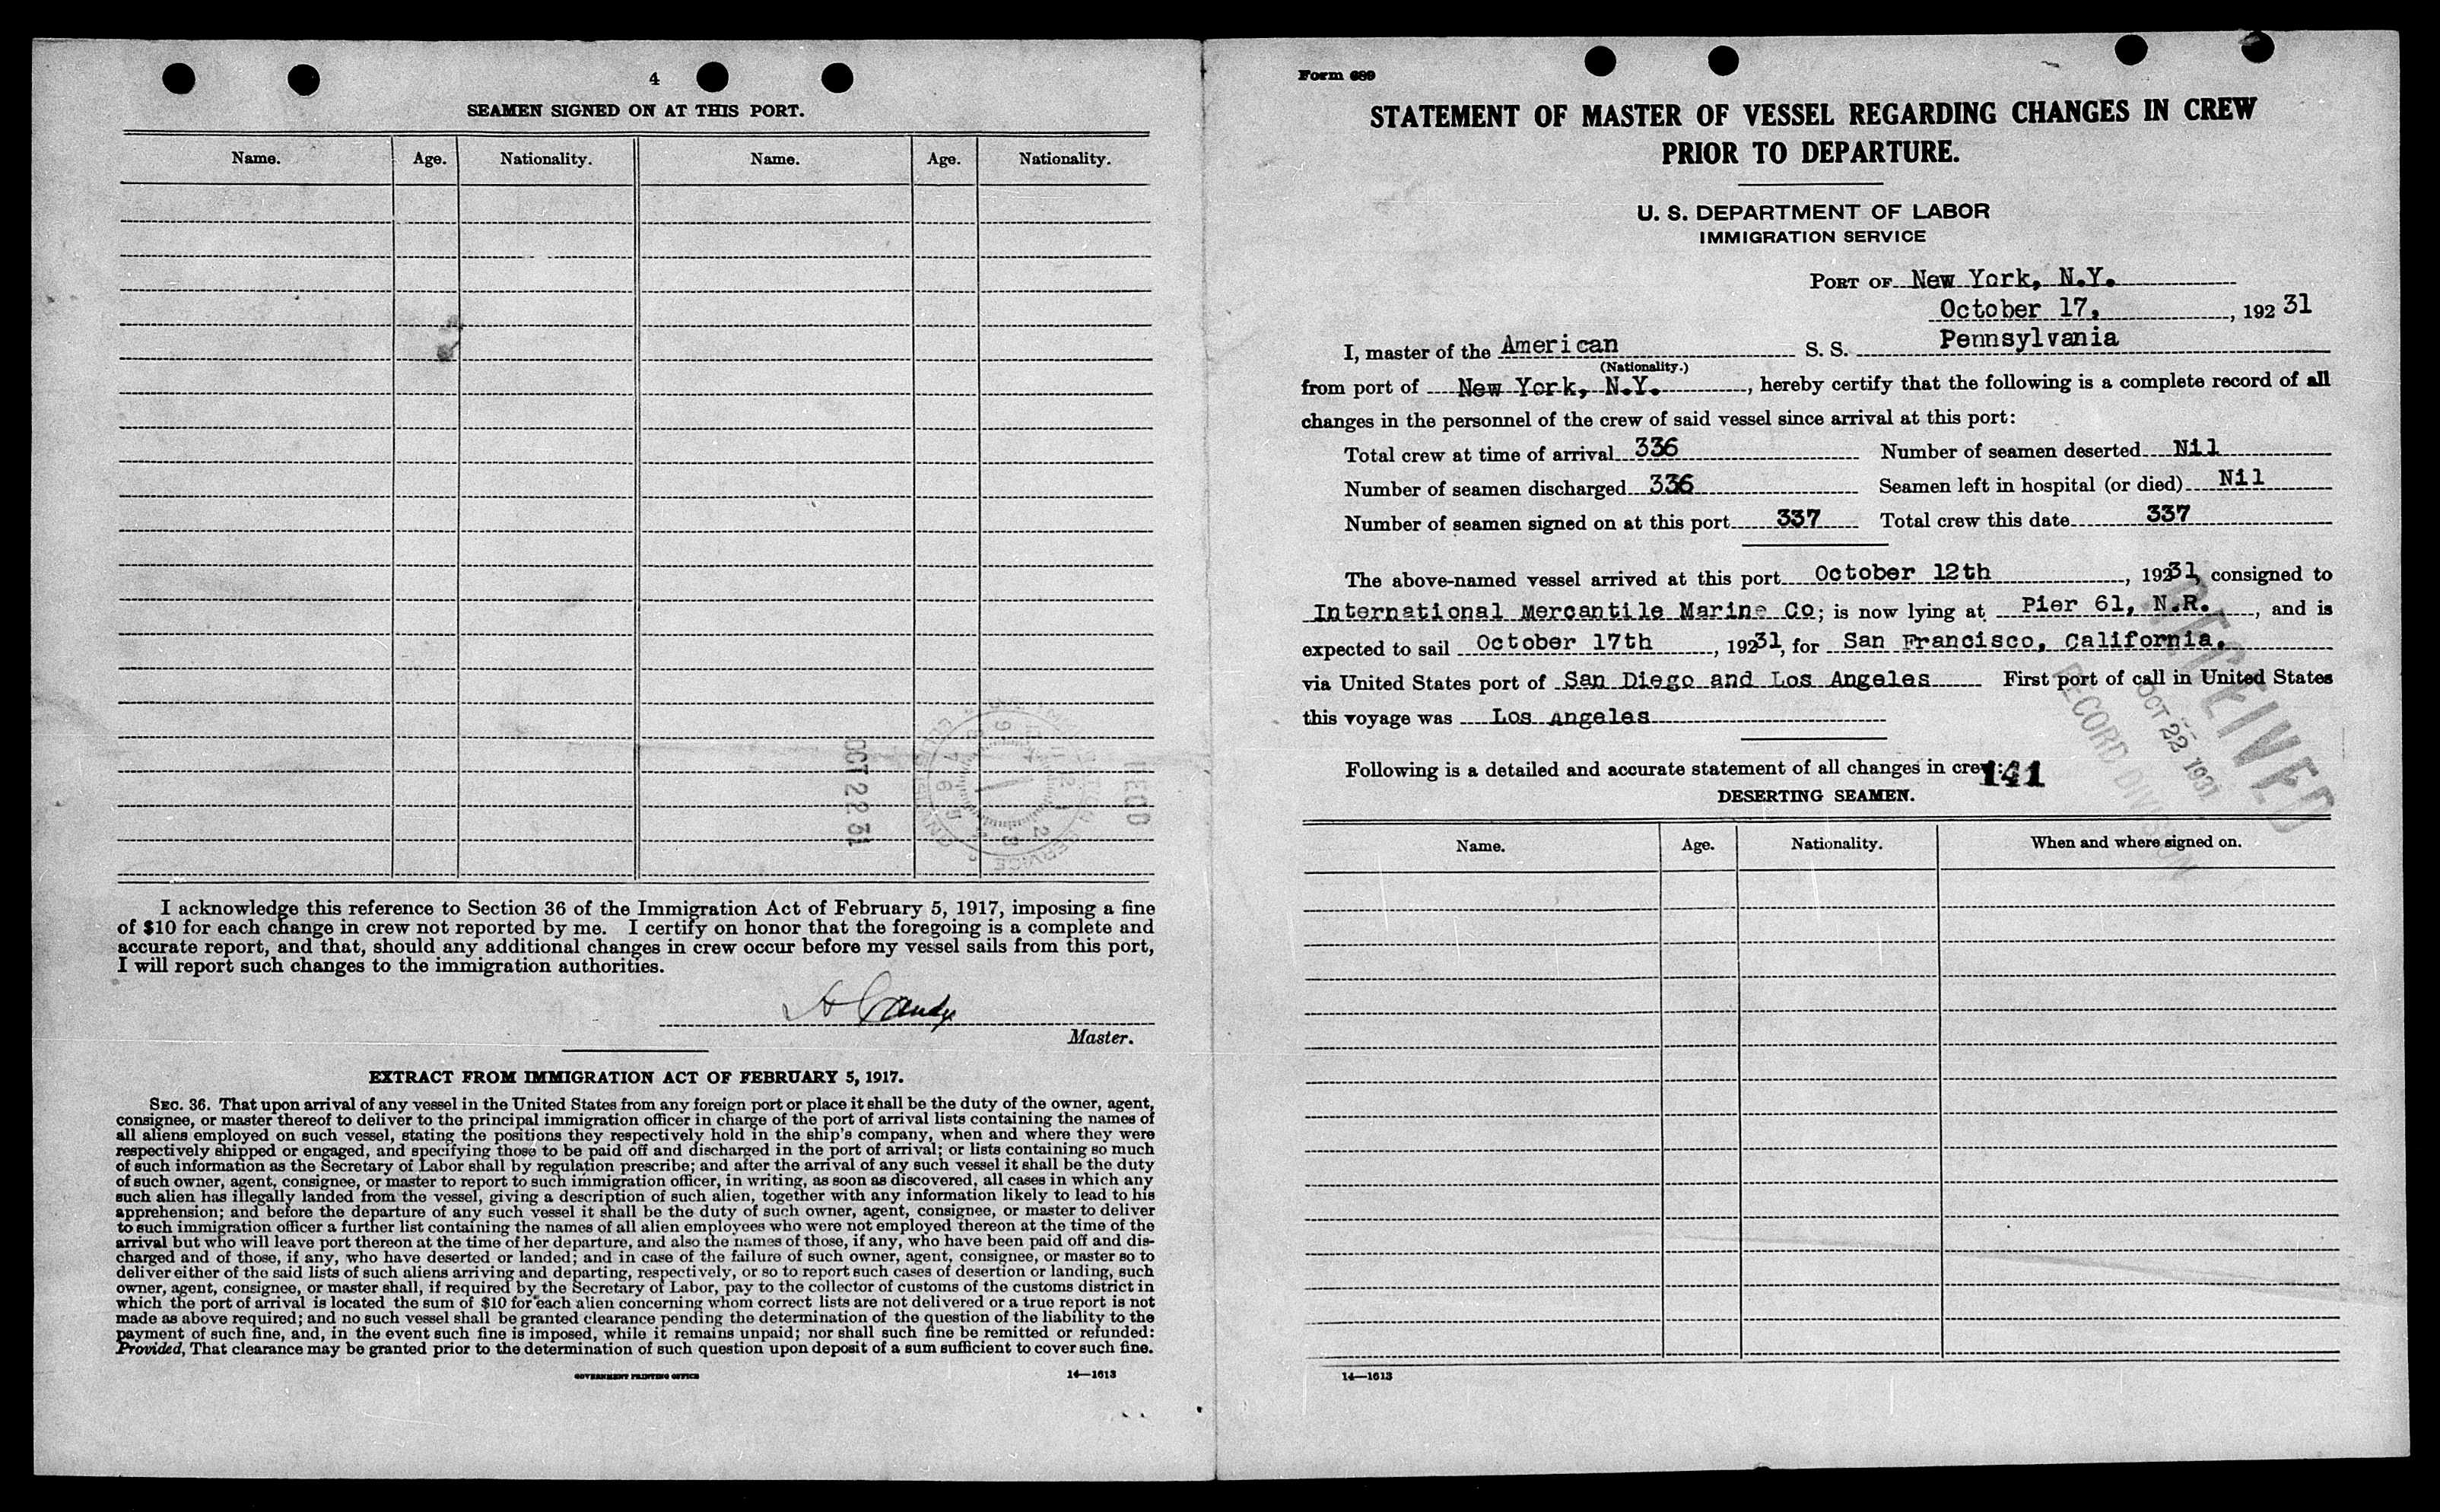 4
SEAMEN SIGNED ON AT THIS PORT.
Name. Age. Nationality. Name. Age. Nationality.
OCT 22 31
I acknowledge this reference to Section 36 of the Immigration Act of February 5, 1917, imposing a fine
of $10 for each change in crew not reported by me. I certify on honor that the foregoing is a complete and
accurate report, and that, should any additional changes in crew occur before my vessel sails from this port,
I will report such changes to the immigration authorities.
Master.
EXTRACT FROM IMMIGRATION ACT OF FEBRUARY 5, 1917.
SEC. 36. That upon arrival of any vessel in the United States from any foreign port or place it shall be the duty of the owner, agent,
consignee, or master thereof to deliver to the principal immigration officer in charge of the port of arrival lists containing the names of
all aliens employed on such vessel, stating the positions they respectively hold in the ship's company, when and where they were
respectively shipped or engaged, and specifying those to be paid off and discharged in the port of arrival; or lists containing so much
of such information as the Secretary of Labor shall by regulation prescribe; and after the arrival of any such vessel it shall be the duty
of such owner, agent, consignee, or master to report to such immigration officer, in writing, as soon as discovered, all cases in which any
such alien has illegally landed from the vessel, giving a description of such alien, together with any information likely to lead to his
apprehension; and before the departure of any such vessel it shall be the duty of such owner, agent, consignee, or master to deliver
to such immigration officer a further list containing the names of all alien employees who were not employed thereon at the time of the
arrival but who will leave port thereon at the time of her departure, and also the names of those, if any, who have been paid off and dis-
charged and of those, if any, who have deserted or landed; and in case of the failure of such owner, agent, consignee, or master so to
deliver either of the said lists of such aliens arriving and departing, respectively, or so to report such cases of desertion or landing, such
owner, agent, consignee, or master shall, if required by the Secretary of Labor, pay to the collector of customs of the customs district in
which the port of arrival is located the sum of $10 for each alien concerning whom correct lists are not delivered or a true report is not
made as above required; and no such vessel shall be granted clearance pending the determination of the question of the liability to the
payment of such fine, and, in the event such fine is imposed, while it remains unpaid; nor shall such fine be remitted or refunded:
Provided, That clearance may be granted prior to the determination of such question upon deposit of a sum sufficient to cover such fine.
GOVERNMENT PRINTING OFFICE 14—1613
Form 689
STATEMENT OF MASTER OF VESSEL REGARDING CHANGES IN CREW
PRIOR TO DEPARTURE.
U. S. DEPARTMENT OF LABOR
IMMIGRATION SERVICE
PORT OF New York, N.Y.
October 17, , 192 31
I, master of the American S. S. Pennsylvania
(Nationality.)
from port of New York, N.Y. , hereby certify that the following is a complete record of all
changes in the personnel of the crew of said vessel since arrival at this port:
Total crew at time of arrival 336 Number of seamen deserted Nil
Number of seamen discharged 336 Seamen left in hospital (or died) Nil
Number of seamen signed on at this port 337 Total crew this date 337
The above-named vessel arrived at this port October 12th , 19231, consigned to
International Mercantile Marine Co; is now lying at Pier 61, N.R. , and is
expected to sail October 17th , 19231, for San Francisco, California.
via United States port of San Diego and Los Angeles First port of call in United States
this voyage was Los Angeles
RECEIVED
OCT 22 1931
RECORD DIVISION
Following is a detailed and accurate statement of all changes in crew: 141
DESERTING SEAMEN.
Name. Age. Nationality. When and where signed on.
14—1613